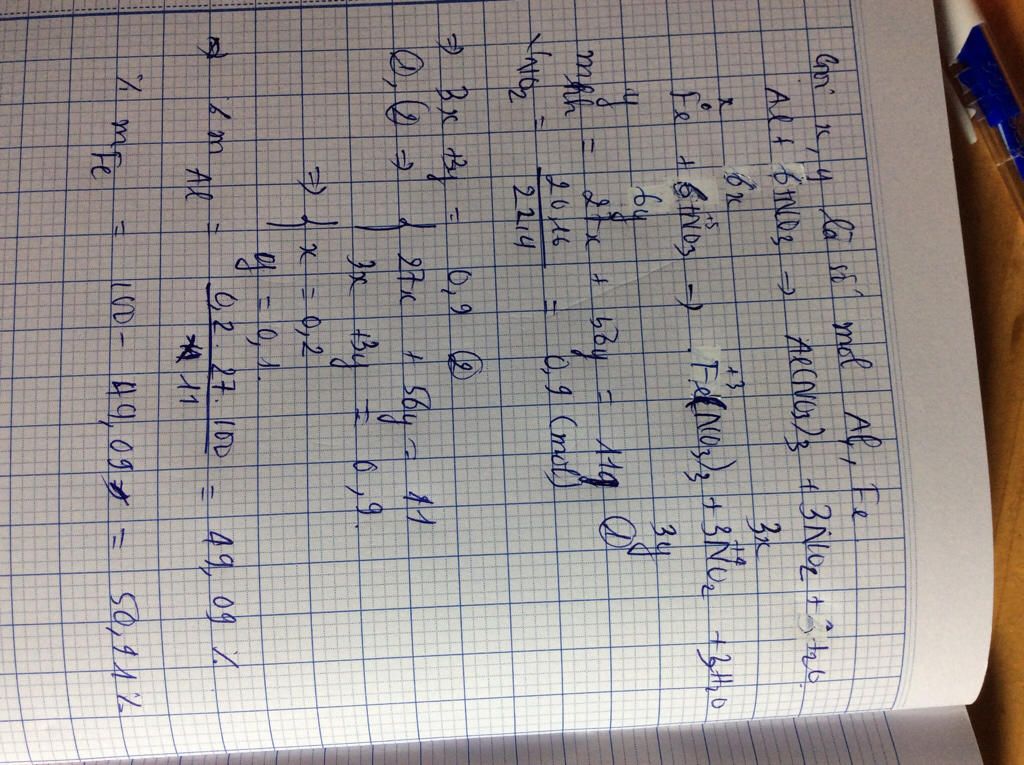 Gọi x, y là số mol Al, Fe
Al + 6HNO3 → Al(NO3)3 + 3NO2 + 3H2O
x 6x 3x
Fe + 6HNO3 → Fe(NO3)3 + 3NO2 + 3H2O
0 +5 +3 +4
y 6y 3y
mhh = 27x + 56y = 11g ①
VNO2 = 20,16 / 22,4 = 0,9 (mol)
⇒ 3x + 3y = 0,9 ②
①, ② ⇒ { 27x + 56y = 11
3x + 3y = 0,9
⇒ { x = 0,2
y = 0,1
⇒ % m Al = 0,2 . 27 . 100 / 11 = 49,09 %
% mFe = 100 - 49,09 = 50,91 %